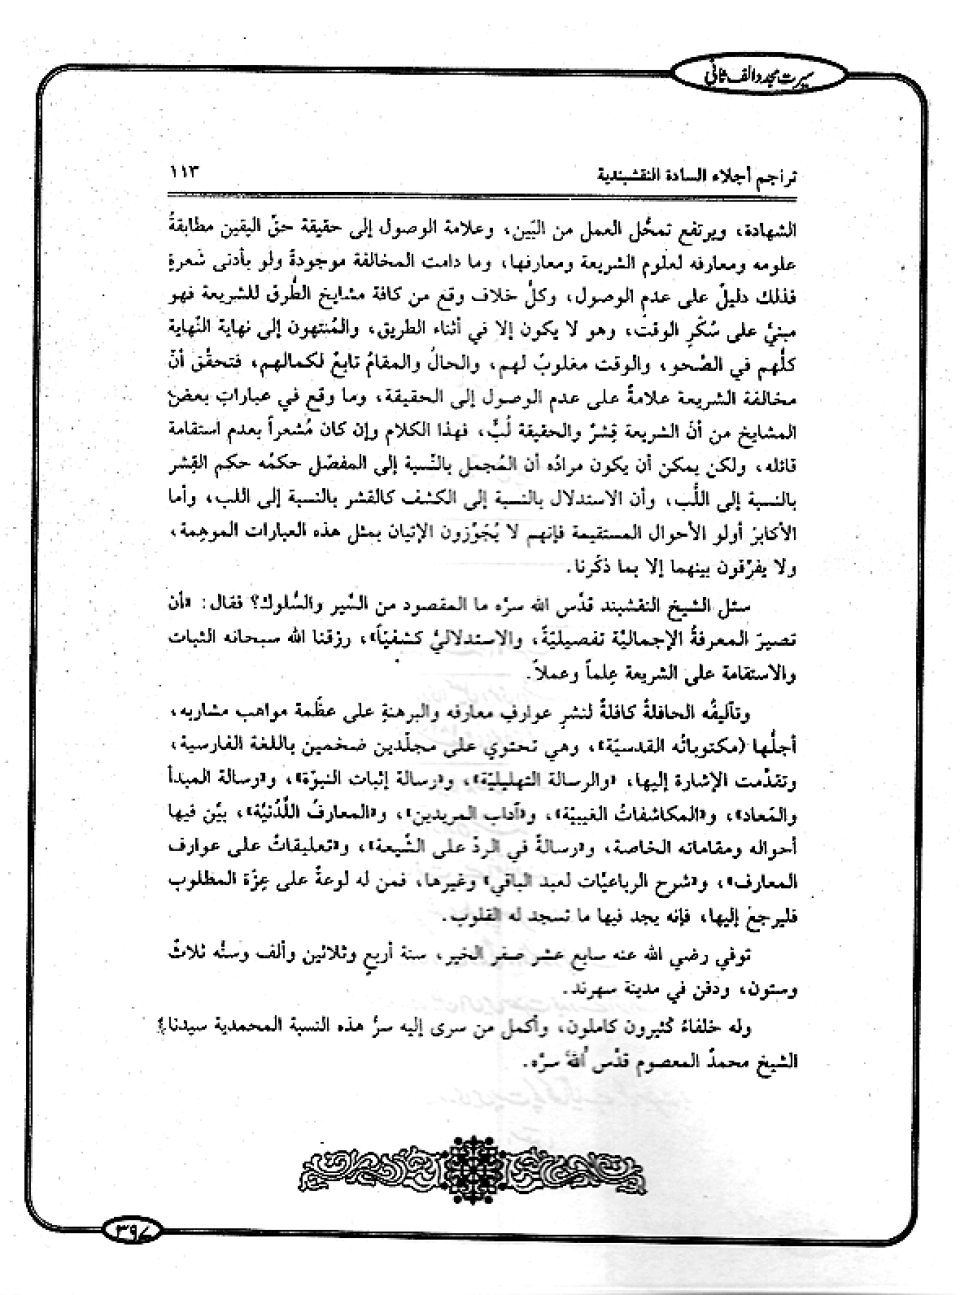 سیرت مجدد الف ثانی
تراجم أجلاء السادة النقشبندية ١١٣
الشهادة، ويرتفع تمحُّل العمل من البَين، وعلامة الوصول إلى حقيقة حقّ اليقين مطابقةُ
علومه ومعارفه لعلوم الشريعة ومعارفها، وما دامت المخالفة موجودةً ولو بأدنى شعرةٍ
فذلك دليلٌ على عدم الوصول، وكلُّ خلاف وقع من كافة مشايخ الطُّرق للشريعة فهو
مبنيٌّ على سُكْرِ الوقت، وهو لا يكون إلا في أثناء الطريق، والمُنتهون إلى نهاية النّهاية
كلُّهم في الصَّحو، والوقت مغلوبٌ لهم، والحالُ والمقامُ تابعٌ لكمالهم، فتحقَّق أنّ
مخالفة الشريعة علامةٌ على عدم الوصول إلى الحقيقة، وما وقع في عباراتِ بعضِ
المشايخ من أنّ الشريعة قِشرٌ والحقيقة لُبٌّ، فهذا الكلام وإن كان مُشعراً بعدم استقامة
قائله، ولكن يمكن أن يكون مرادُه أن المُجمل بالنّسبة إلى المفصّل حكمُه حكم القِشر
بالنسبة إلى اللُّب، وأن الاستدلال بالنسبة إلى الكشف كالقشر بالنسبة إلى اللب، وأما
الأكابرُ أولو الأحوال المستقيمة فإنهم لا يُجَوِّزون الإتيان بمثل هذه العبارات الموهِمة،
ولا يفرّقون بينهما إلا بما ذكرنا.
سئل الشيخ النقشبند قدّس الله سرّه ما المقصود من السَّير والسُّلوك؟ فقال: «أن
تصيرَ المعرفةُ الإجماليّة تفصيليّةً، والاستدلاليُّ كشفيّاً»، رزقنا الله سبحانه الثبات
والاستقامة على الشريعة عِلماً وعملاً.
وتآليفُه الحافلةُ كافلةٌ لنشرِ عوارفِ معارفِه والبرهنةِ على عظَمة مواهب مشاربه،
أجلُّها (مكتوباتُه القدسيّة»، وهي تحتوي على مجلّدين ضخمين باللغة الفارسية،
وتقدَّمت الإشارة إليها، «والرسالة التهليليّة»، و«رسالة إثبات النبوّة»، و«رسالة المبدأ
والمَعاد»، و«المكاشفاتُ الغيبيّة»، و«آداب المريدين»، و«المعارفُ اللَّدُنيَّة»، بيّن فيها
أحواله ومقاماته الخاصة، و«رسالةٌ في الردّ على الشّيعة»، و«تعليقاتٌ على عوارف
المعارف»، و«شرح الرباعيّات لعبد الباقي» وغيرها، فمن له لوعةٌ على عِزّة المطلوب
فليرجعْ إليها، فإنه يجد فيها ما تسجد له القلوب.
توفي رضي الله عنه سابع عشر صفر الخير، سنة أربعٍ وثلاثين وألف وسنّه ثلاثٌ
وستون، ودفن في مدينة سهرند.
وله خلفاءُ كثيرون كاملون، وأكمل من سرى إليه سرُّ هذه النسبة المحمدية سيدنا
الشيخ محمدٌ المعصوم قدّس اللهُ سرّه.